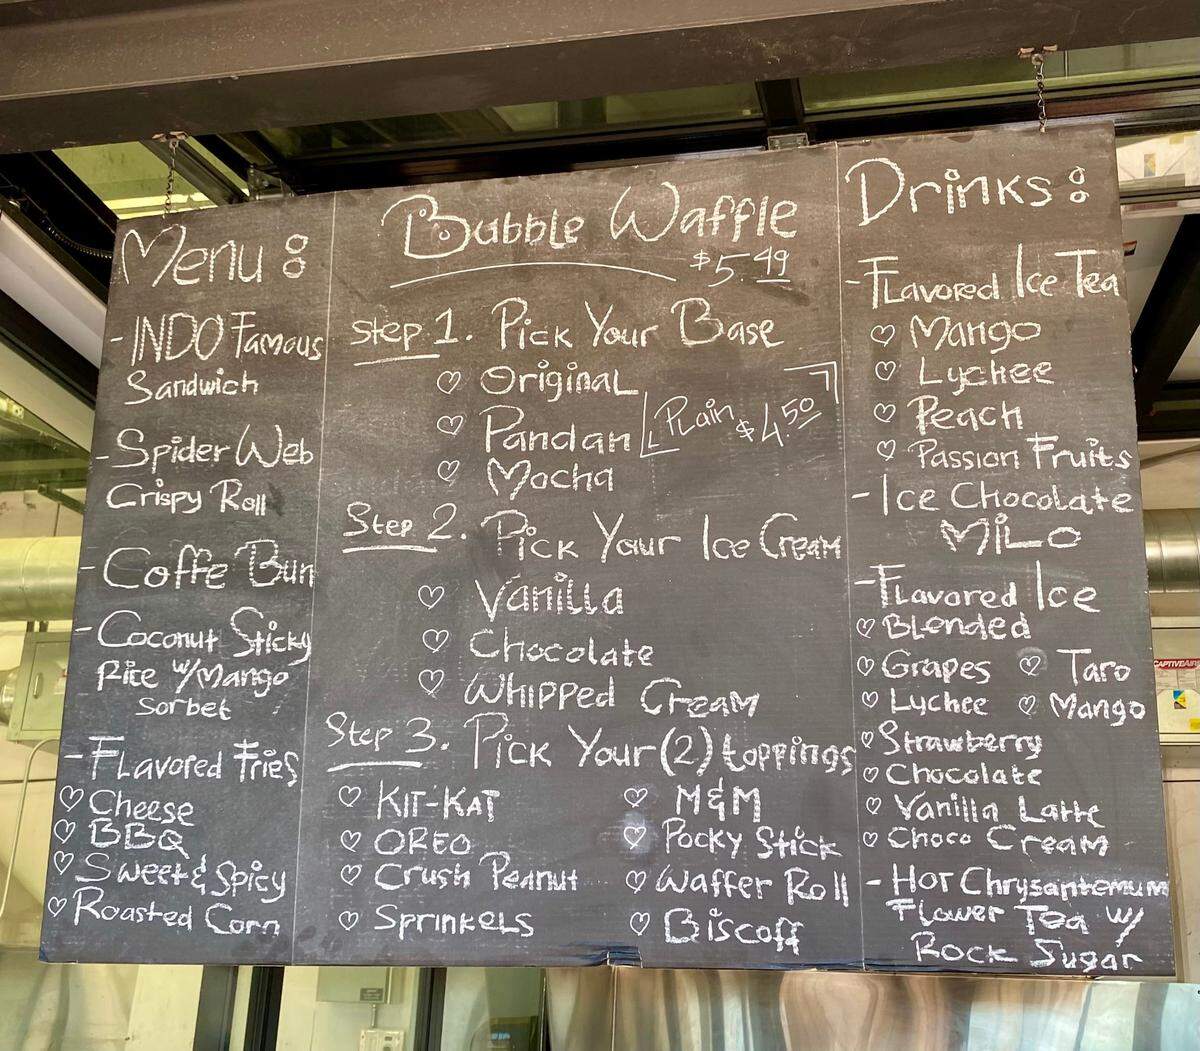 Menu:
- INDO Famous
Sandwich
- Spider Web
Crispy Roll
- Coffe Bun
- Coconut Sticky
Rice w/Mango
Sorbet
- Flavored Fries
♡ Cheese
♡ BBQ
♡ Sweet & Spicy
♡ Roasted Corn
Bubble Waffle
$5.49
Step 1. Pick Your Base
♡ Original
♡ Pandan
♡ Mocha
Plain $4.50
Step 2. Pick Your Ice Cream
♡ Vanilla
♡ Chocolate
♡ Whipped Cream
Step 3. Pick Your (2) toppings
♡ KIT-KAT
♡ OREO
♡ Crush Peanut
♡ Sprinkels
♡ M&M
♡ Pocky Stick
♡ Waffer Roll
♡ Biscoff
Drinks:
- Flavored Ice Tea
♡ Mango
♡ Lychee
♡ Peach
♡ Passion Fruits
- Ice Chocolate
MiLO
- Flavored Ice
♡ Blended
♡ Grapes ♡ Taro
♡ Lychee ♡ Mango
♡ Strawberry
♡ Chocolate
♡ Vanilla Latte
♡ Choco Cream
- Hot Chrysantemum
Flower Tea w/
Rock Sugar
CAPTIVEAIRE